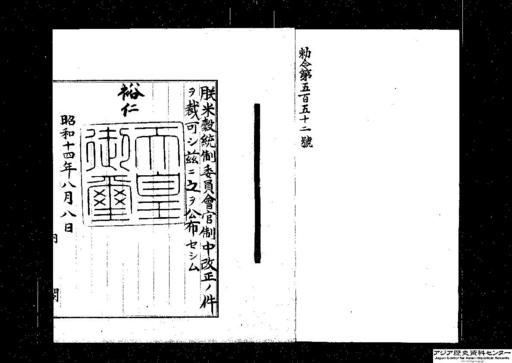 勅令第五百五十二號
朕米穀統制委員會官制中改正ノ件
ヲ裁可シ茲ニ之ヲ公布セシム
裕仁
天皇
御璽
昭和十四年八月八日
内
閣
アジア歴史資料センター
Japan Center for Asian Historical Records